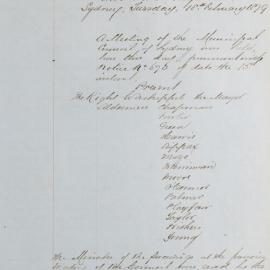 Sydney, Tuesday, 18th February 1879
A Meeting of the Municipal
Council of Sydney was held
this day, pursuant to
Notice No 696 of date the 15th
instant.
Present
The Right Worshipful the Mayor
Aldermen Chapman
Fowler
Green
Harris
Hippax
More
Merriman
Moore
O'Connor
Palmer
Playfair
Taylor
Withers
Young
The Minutes of the Proceedings at the previous
Meeting of the Council were read by the